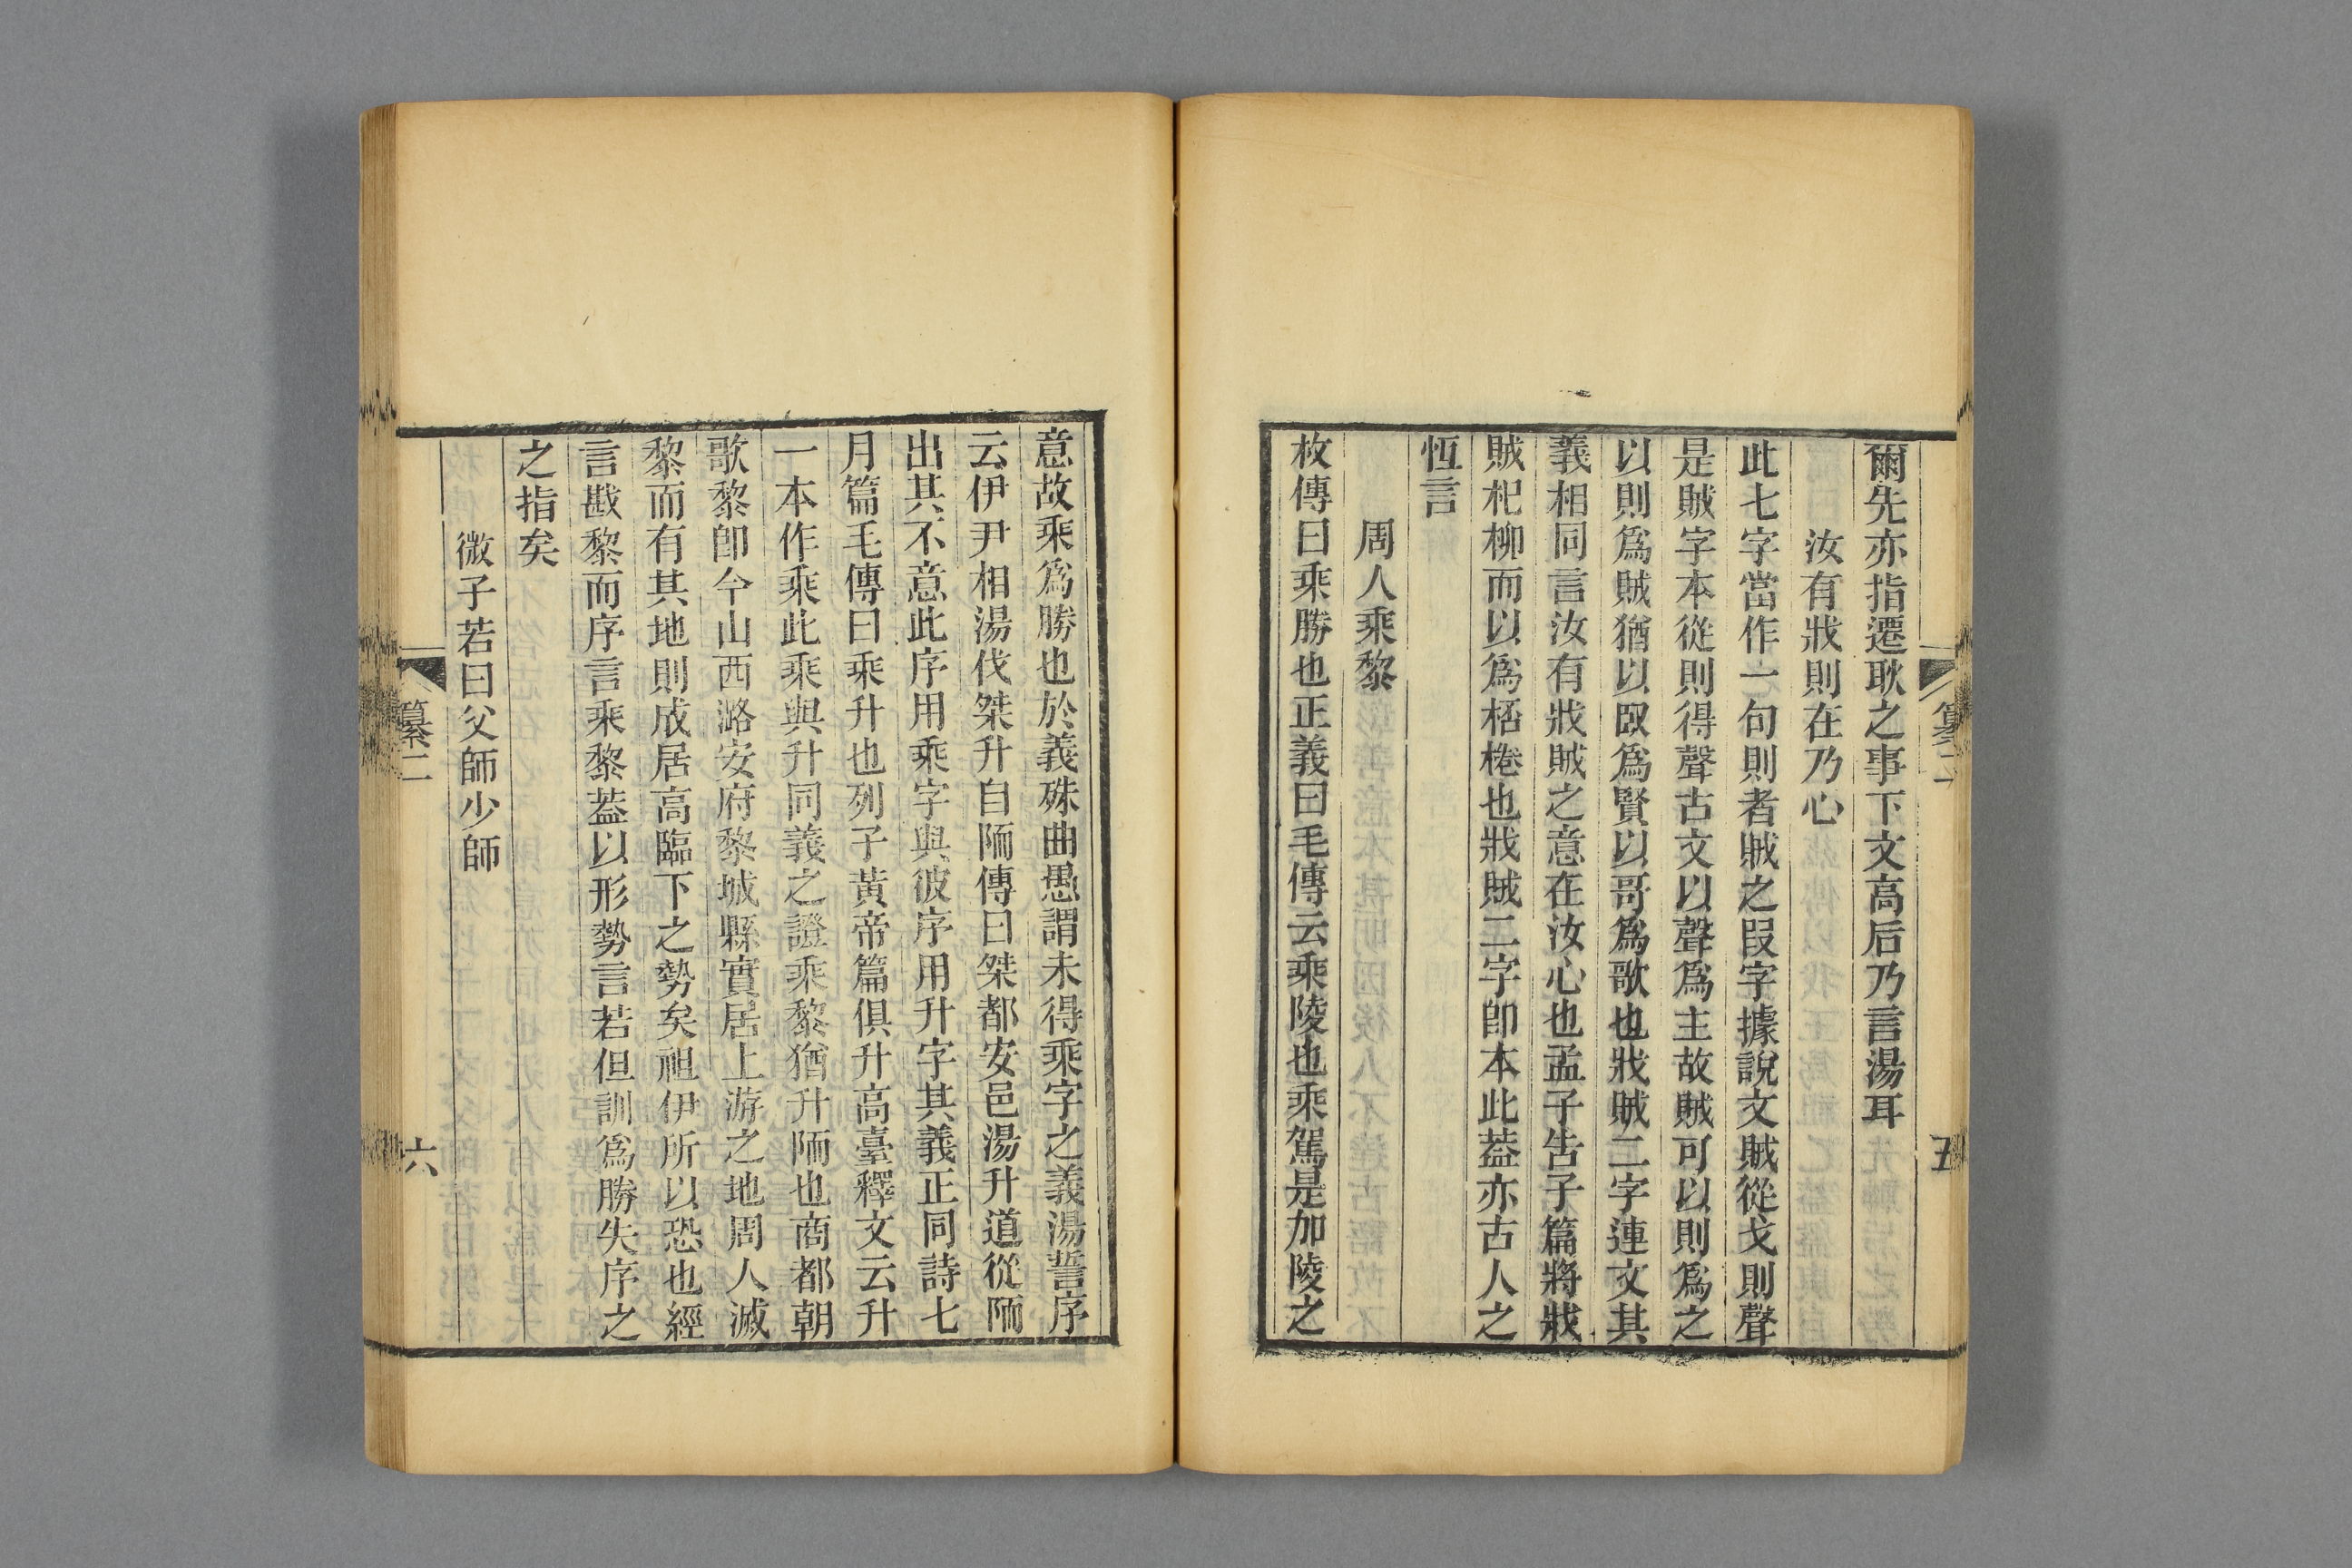 爾先亦指遷耿之事下文高后乃言湯耳
汝有戕則在乃心
此七字當作一句則者賊之叚字據說文賊從戈則聲
是賊字本從則得聲古文以聲爲主故賊可以則爲之
以則爲賊猶以臤爲賢以哥爲歌也戕賊二字連文其
義相同言汝有戕賊之意在汝心也孟子告子篇將戕
賊杞柳而以爲桮棬也戕賊二字卽本此葢亦古人之
恆言
周人乘黎
枚傳曰乘勝也正義曰毛傳云乘陵也乘駕是加陵之
意故乘爲勝也於義殊曲愚謂未得乘字之義湯誓序
云伊尹相湯伐桀升自陑傳曰桀都安邑湯升道從陑
出其不意此序用乘字與彼序用升字其義正同詩七
月篇毛傳曰乘升也列子黃帝篇俱升高臺釋文云升
一本作乘此乘與升同義之證乘黎猶升陑也商都朝
歌黎卽今山西潞安府黎城縣實居上游之地周人滅
黎而有其地則成居高臨下之勢矣祖伊所以恐也經
言戡黎而序言乘黎葢以形勢言若但訓爲勝失序之
之指矣
微子若曰父師少師
纂二
六
五